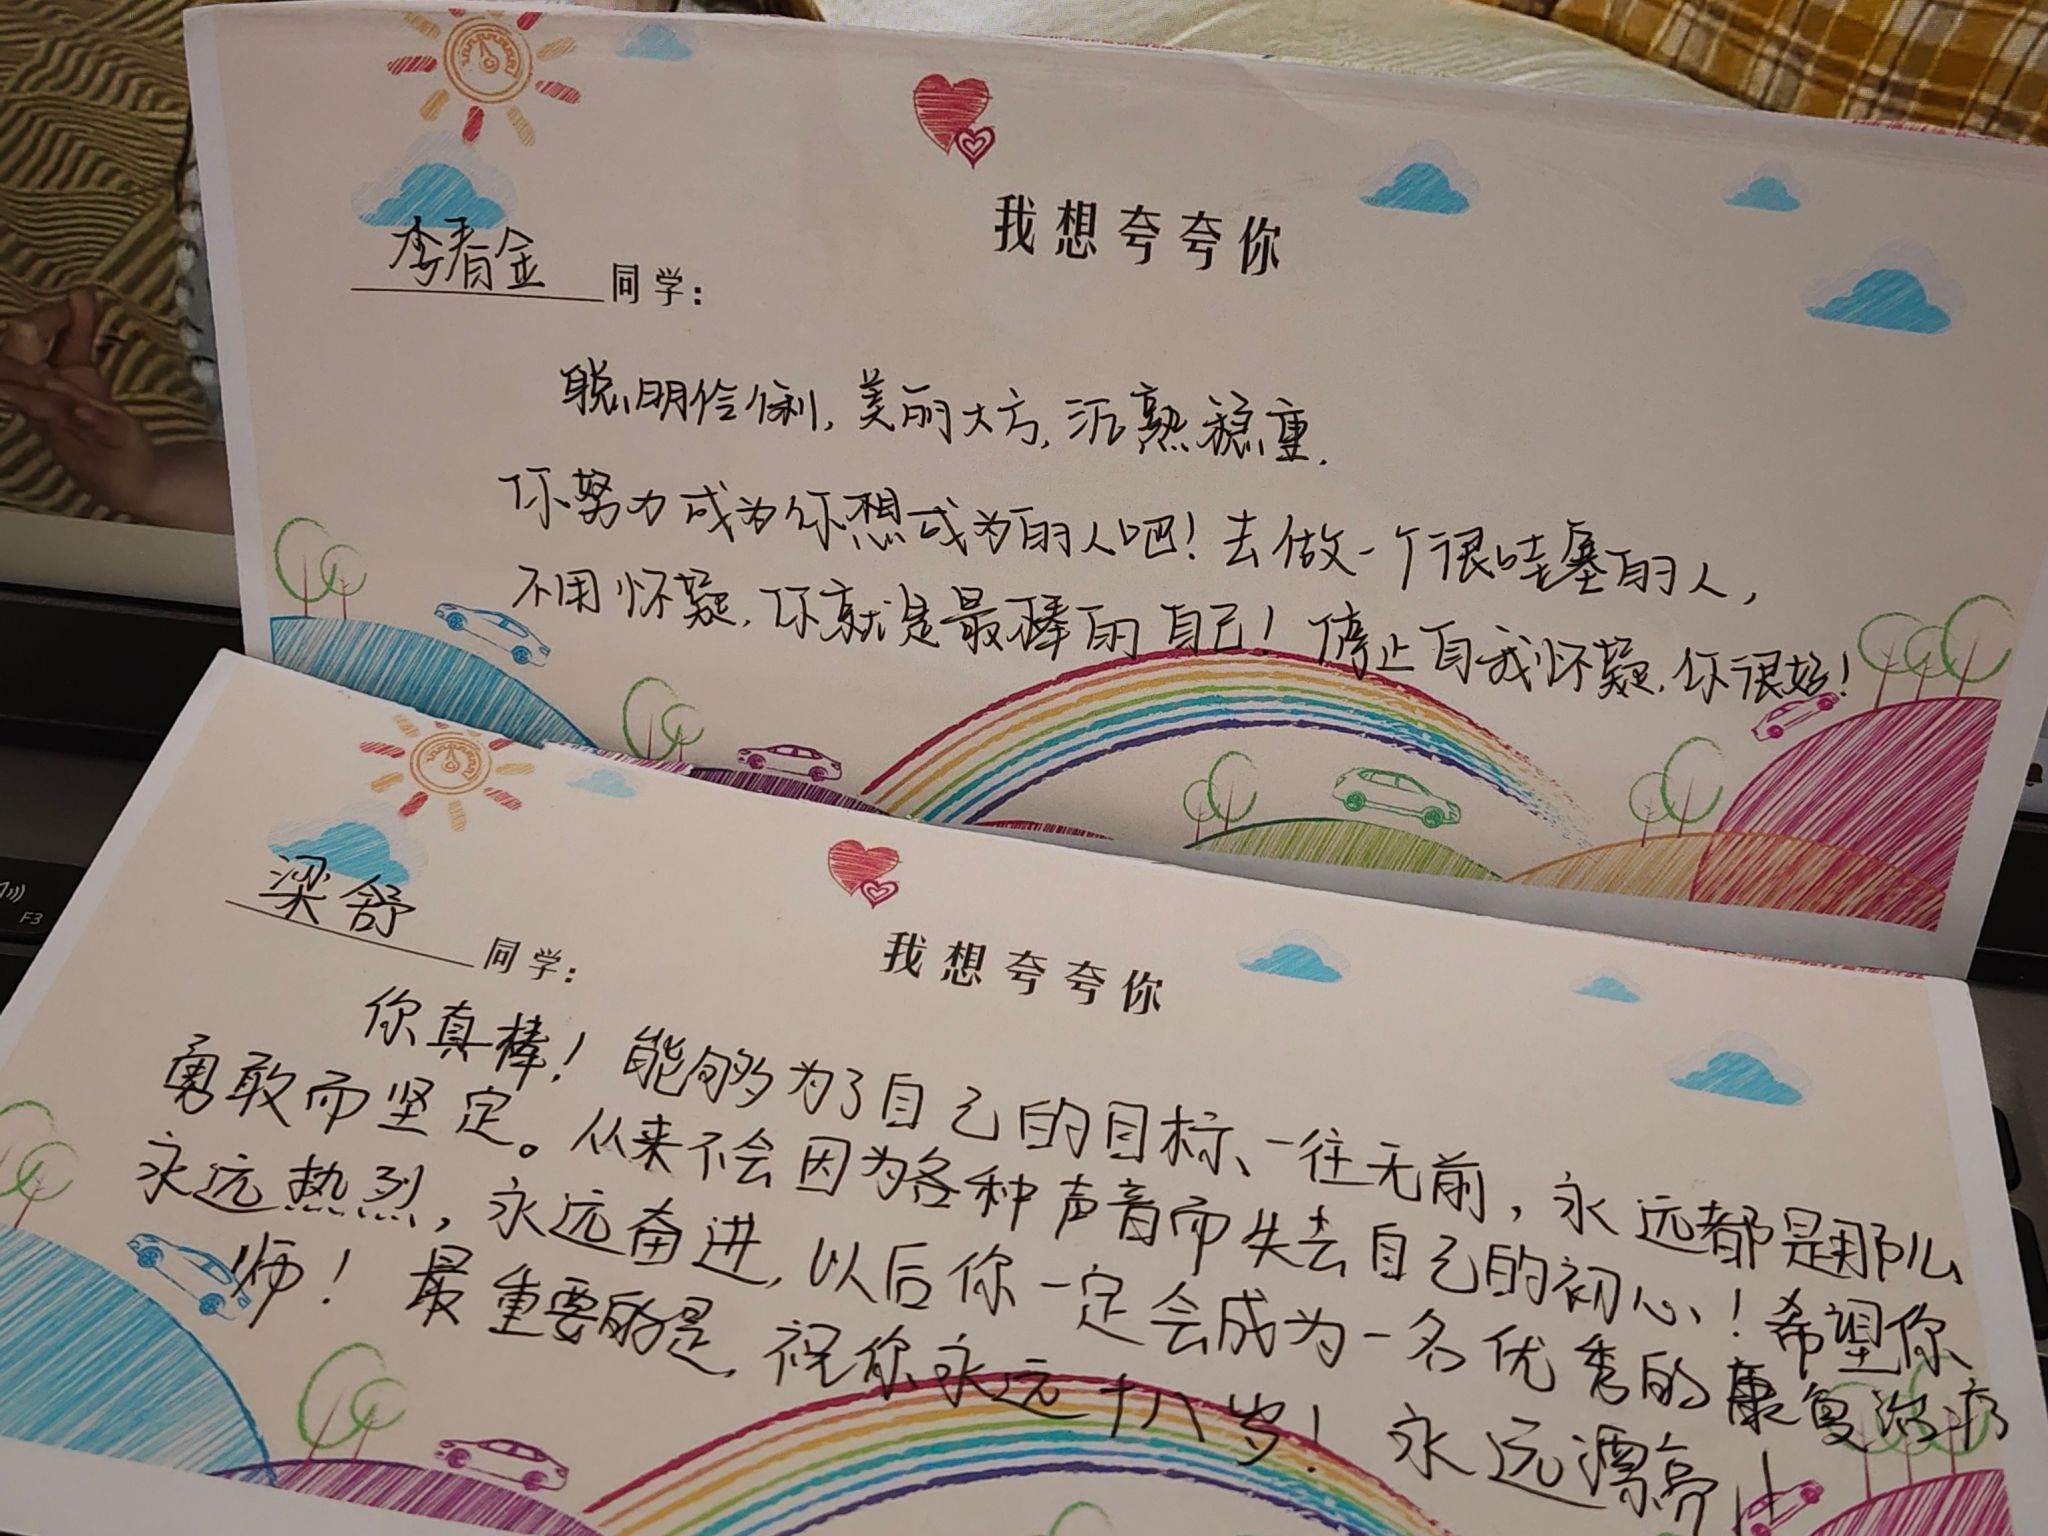 我想夸夸你
李看金 同学:
聪明伶俐,美丽大方,沉熟稳重.
你努力成为你想成为的人吧!去做一个很哇塞的人,
不用怀疑,你就是最棒的自己!停止自我怀疑,你很好!
我想夸夸你
梁舒 同学:
你真棒!能够为了自己的目标、一往无前,永远都是那么
勇敢而坚定。从来不会因为各种声音而失去自己的初心!希望你
永远热烈,永远奋进,以后你一定会成为一名优秀的康复治疗
师!最重要的是,祝你永远十八岁!永远漂亮!!
F3